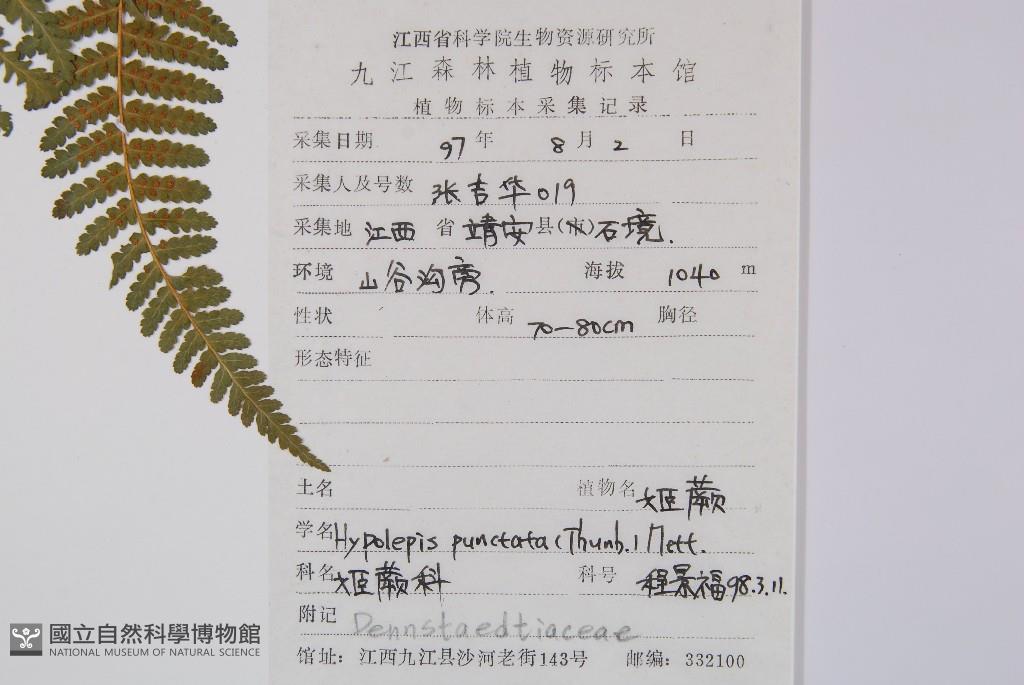 江西省科学院生物资源研究所
九江森林植物标本馆
植物标本采集记录
采集日期 97 年 8 月 2 日
采集人及号数 张吉华019
采集地 江西 省 靖安 县(市)石境.
环境 山谷沟旁. 海拔 1040 m
性状 体高 70-80cm 胸径
形态特征
土名 植物名 姬蕨
学名 Hypolepis punctata (Thunb.) Mett.
科名 姬蕨科 科号 程景福98.3.11.
附记 Dennstaedtiaceae
馆址：江西九江县沙河老街143号 邮编：332100
國立自然科學博物館
NATIONAL MUSEUM OF NATURAL SCIENCE